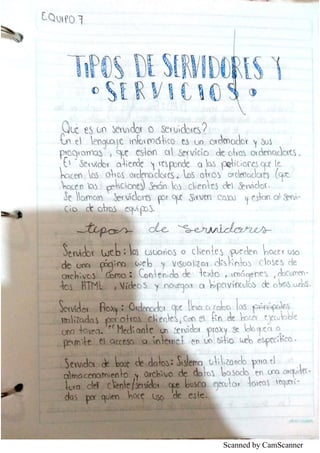 EQUIPO 7
TIPOS DE SERVIDORES Y
• SERVICIOS •
Que es un servidor o servidores?
En el lenguaje informatico es un ordenador y sus
programas, que estan al servicio de otros ordenadores.
El servidor atiende y responde a las peticiones que le
hacen los otros ordenadores. Los otros ordenadores (que
hacen las peticiones) Serán los clientes del servidor.
Se llaman Servidores por que Sirven cosas y estan al servi-
cio de otros equipos.
tipos de Servidores
Servidor web: los usuarios o clientes pueden hacer uso
de una página web y visualizar distintos clases de
archivos Como: Contenido de texto, imágenes, documen-
tos HTML, Videos y navegar a hipervinculos de otras webs.
Servidor Proxy: Ordenador que lleva a cabo las principales
por otros clientes, con el fin de hacer ejecutable
una tarea. "Mediante un servidor proxy se bloquea o
permite el acceso a internet en un sitio web especifico.
Servidor de base de datos: Sistema utilizando para el
almacenamiento y archivo de datos basado en una arquitec-
tura del cliente/servidor que busca ejecutar tareas requeri-
das por quien hace uso de este.
Scanned by CamScanner